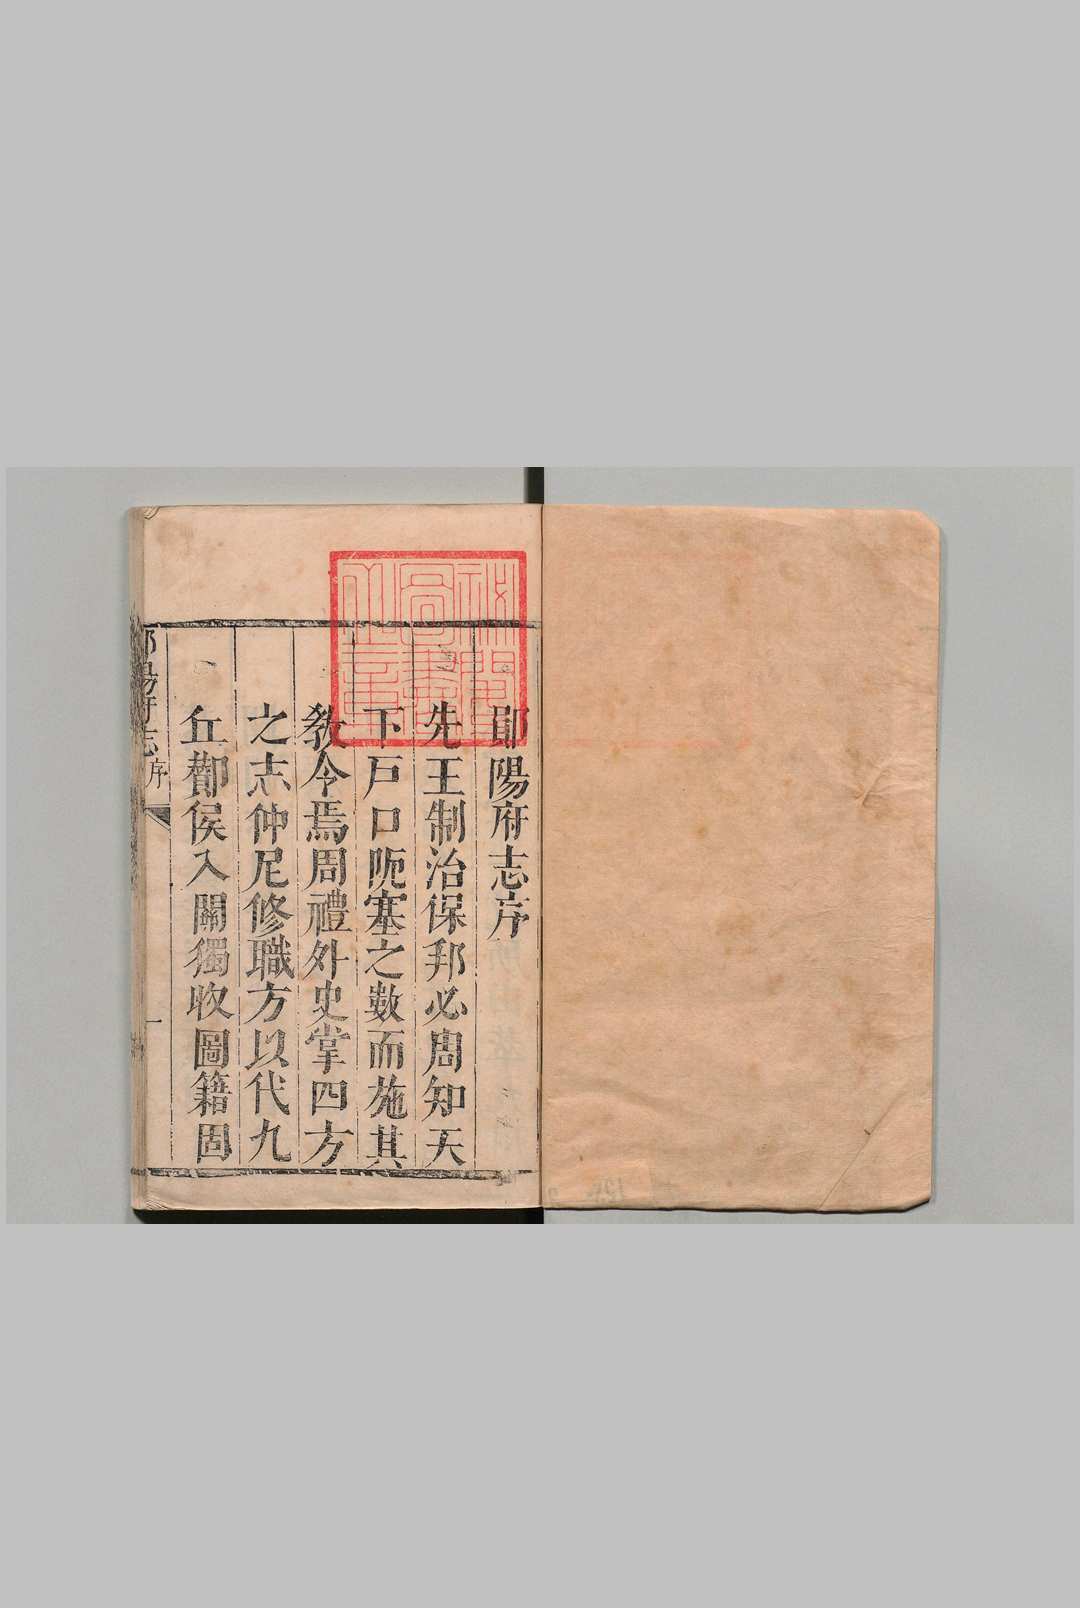 鄖陽府志序
先王制治保邦必周知天
下戶口阨塞之數而施其
教令焉周禮外史掌四方
之志仲尼修職方以代九
丘酇侯入關獨收圖籍固
鄖陽府志 序
一